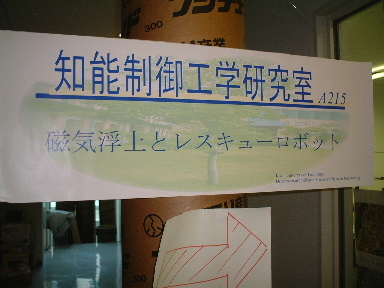 300
知能制御工学研究室
A215
磁気浮上とレスキューロボット
300